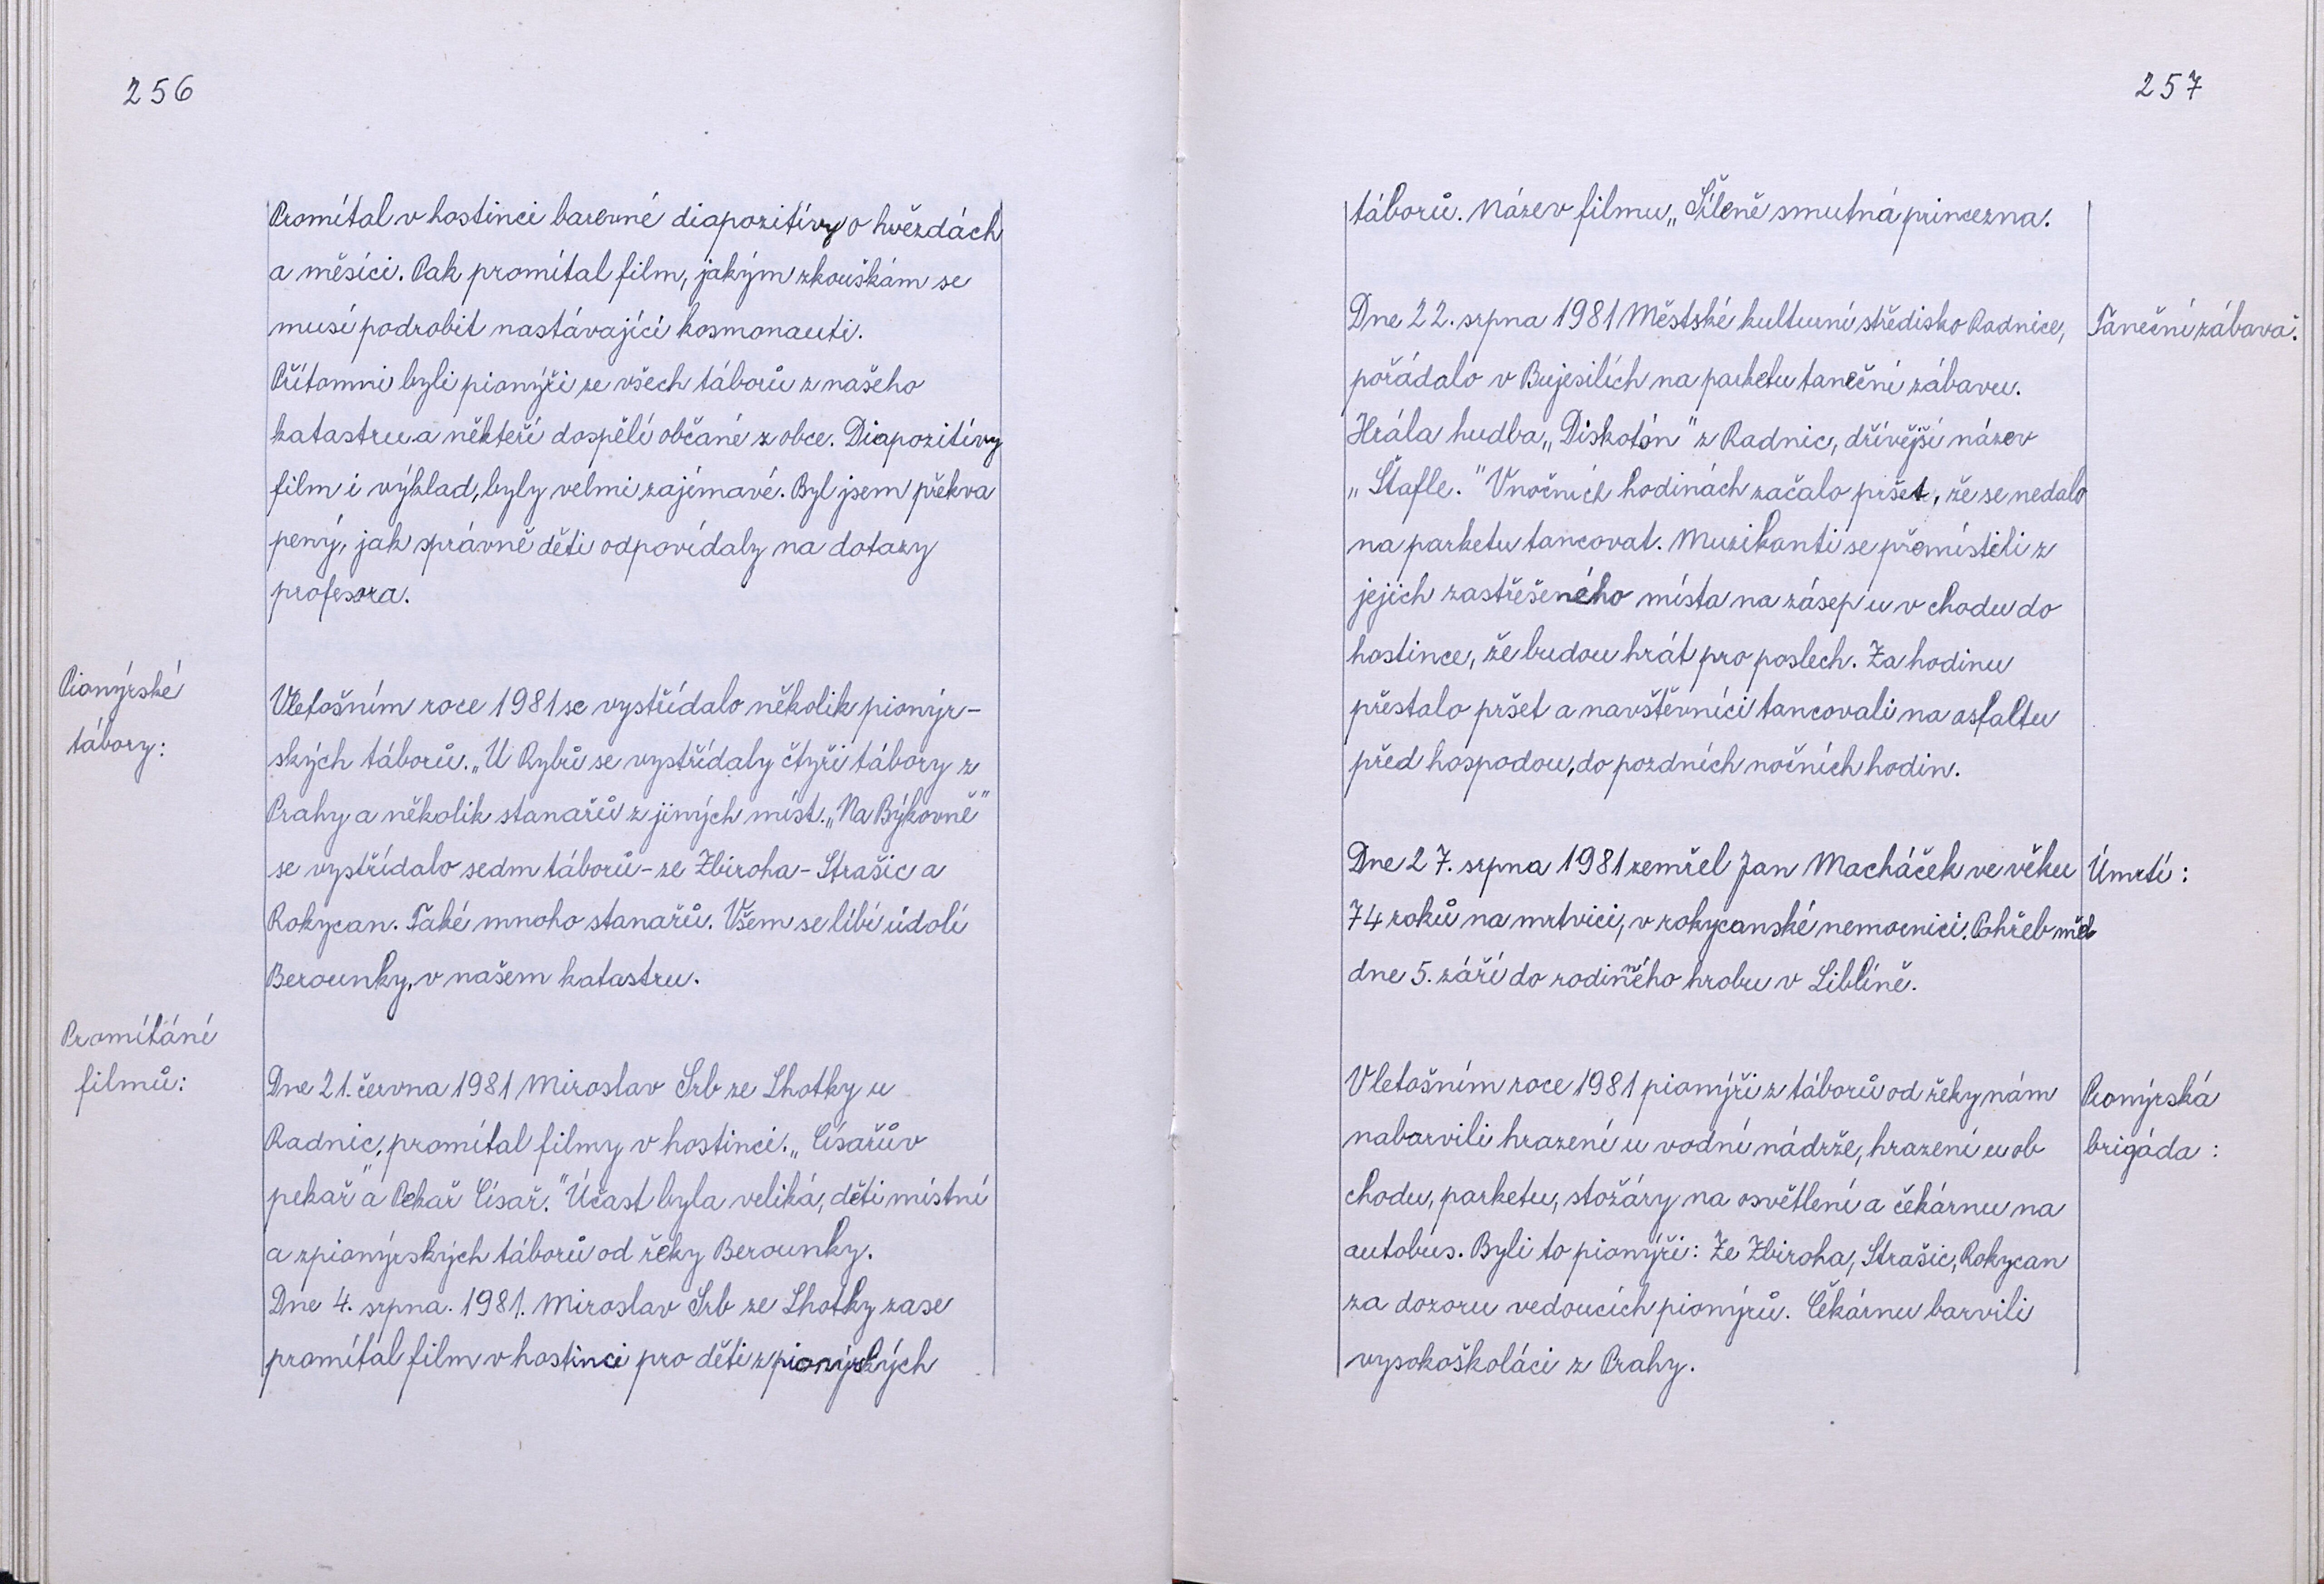 256
Promítal v hostinci barevné diapozitívy o hvězdách
a měsíci. Pak promítal film, jakým zkouškám se
musí podrobit nastávající kosmonauti.
Přítomni byli pionýři ze všech táborů z našeho
katastru a někteří dospělí občané z obce. Diapozitívy
film i výklad, byly velmi zajímavé. Byl jsem překva
pený, jak správně děti odpovídaly na dotazy
profesora.
Pionýrské
tábory:
V letošním roce 1981 se vystřídalo několik pionýr-
ských táborů. „U Rybů se vystřídaly čtyři tábory z
Prahy a několik stanařů z jiných míst. „Na Býkovně"
se vystřídalo sedm táborů - ze Zbiroha - Strašic a
Rokycan. Také mnoho stanařů. Všem se líbí údolí
Berounky, v našem katastru.
Promítání
filmů:
Dne 21. června 1981 Miroslav Srb ze Lhotky u
Radnic, promítal filmy v hostinci. „Císařův
pekař" a Pekař Císař." Účast byla veliká, děti místní
a z pionýrských táborů od řeky Berounky.
Dne 4. srpna. 1981. Miroslav Srb ze Lhotky zase
promítal film v hostinci pro děti z pionýrských
257
táborů. Název filmu „Šíleně smutná princezna.
Taneční zábava:
Dne 22. srpna 1981 Městské kulturní středisko Radnice,
pořádalo v Bujesilích na parketu taneční zábavu.
Hrála hudba „Diskotón" z Radnic, dřívější název
„Štafle." V nočních hodinách začalo pršet, že se nedalo
na parketu tancovat. Muzikanti se přemístili z
jejich zastřešeného místa na zásep u vchodu do
hostince, že budou hrát pro poslech. Za hodinu
přestalo pršet a navštěvníci tancovali na asfaltu
před hospodou, do pozdních nočních hodin.
Úmrtí:
Dne 27. srpna 1981 zemřel Jan Macháček ve věku
74 roků na mrtvici, v rokycanské nemocnici. Pohřeb měl
dne 5. září do rodinného hrobu v Liblíně.
Pionýrská
brigáda:
V letošním roce 1981 pionýři z táborů od řeky nám
nabarvili hrazení u vodní nádrže, hrazení u ob
chodu, parketu, stožáry na osvětlení a čekárnu na
autobus. Byli to pionýři: Ze Zbiroha, Strašic, Rokycan
za dozoru vedoucích pionýrů. Čekárnu barvili
vysokoškoláci z Prahy.